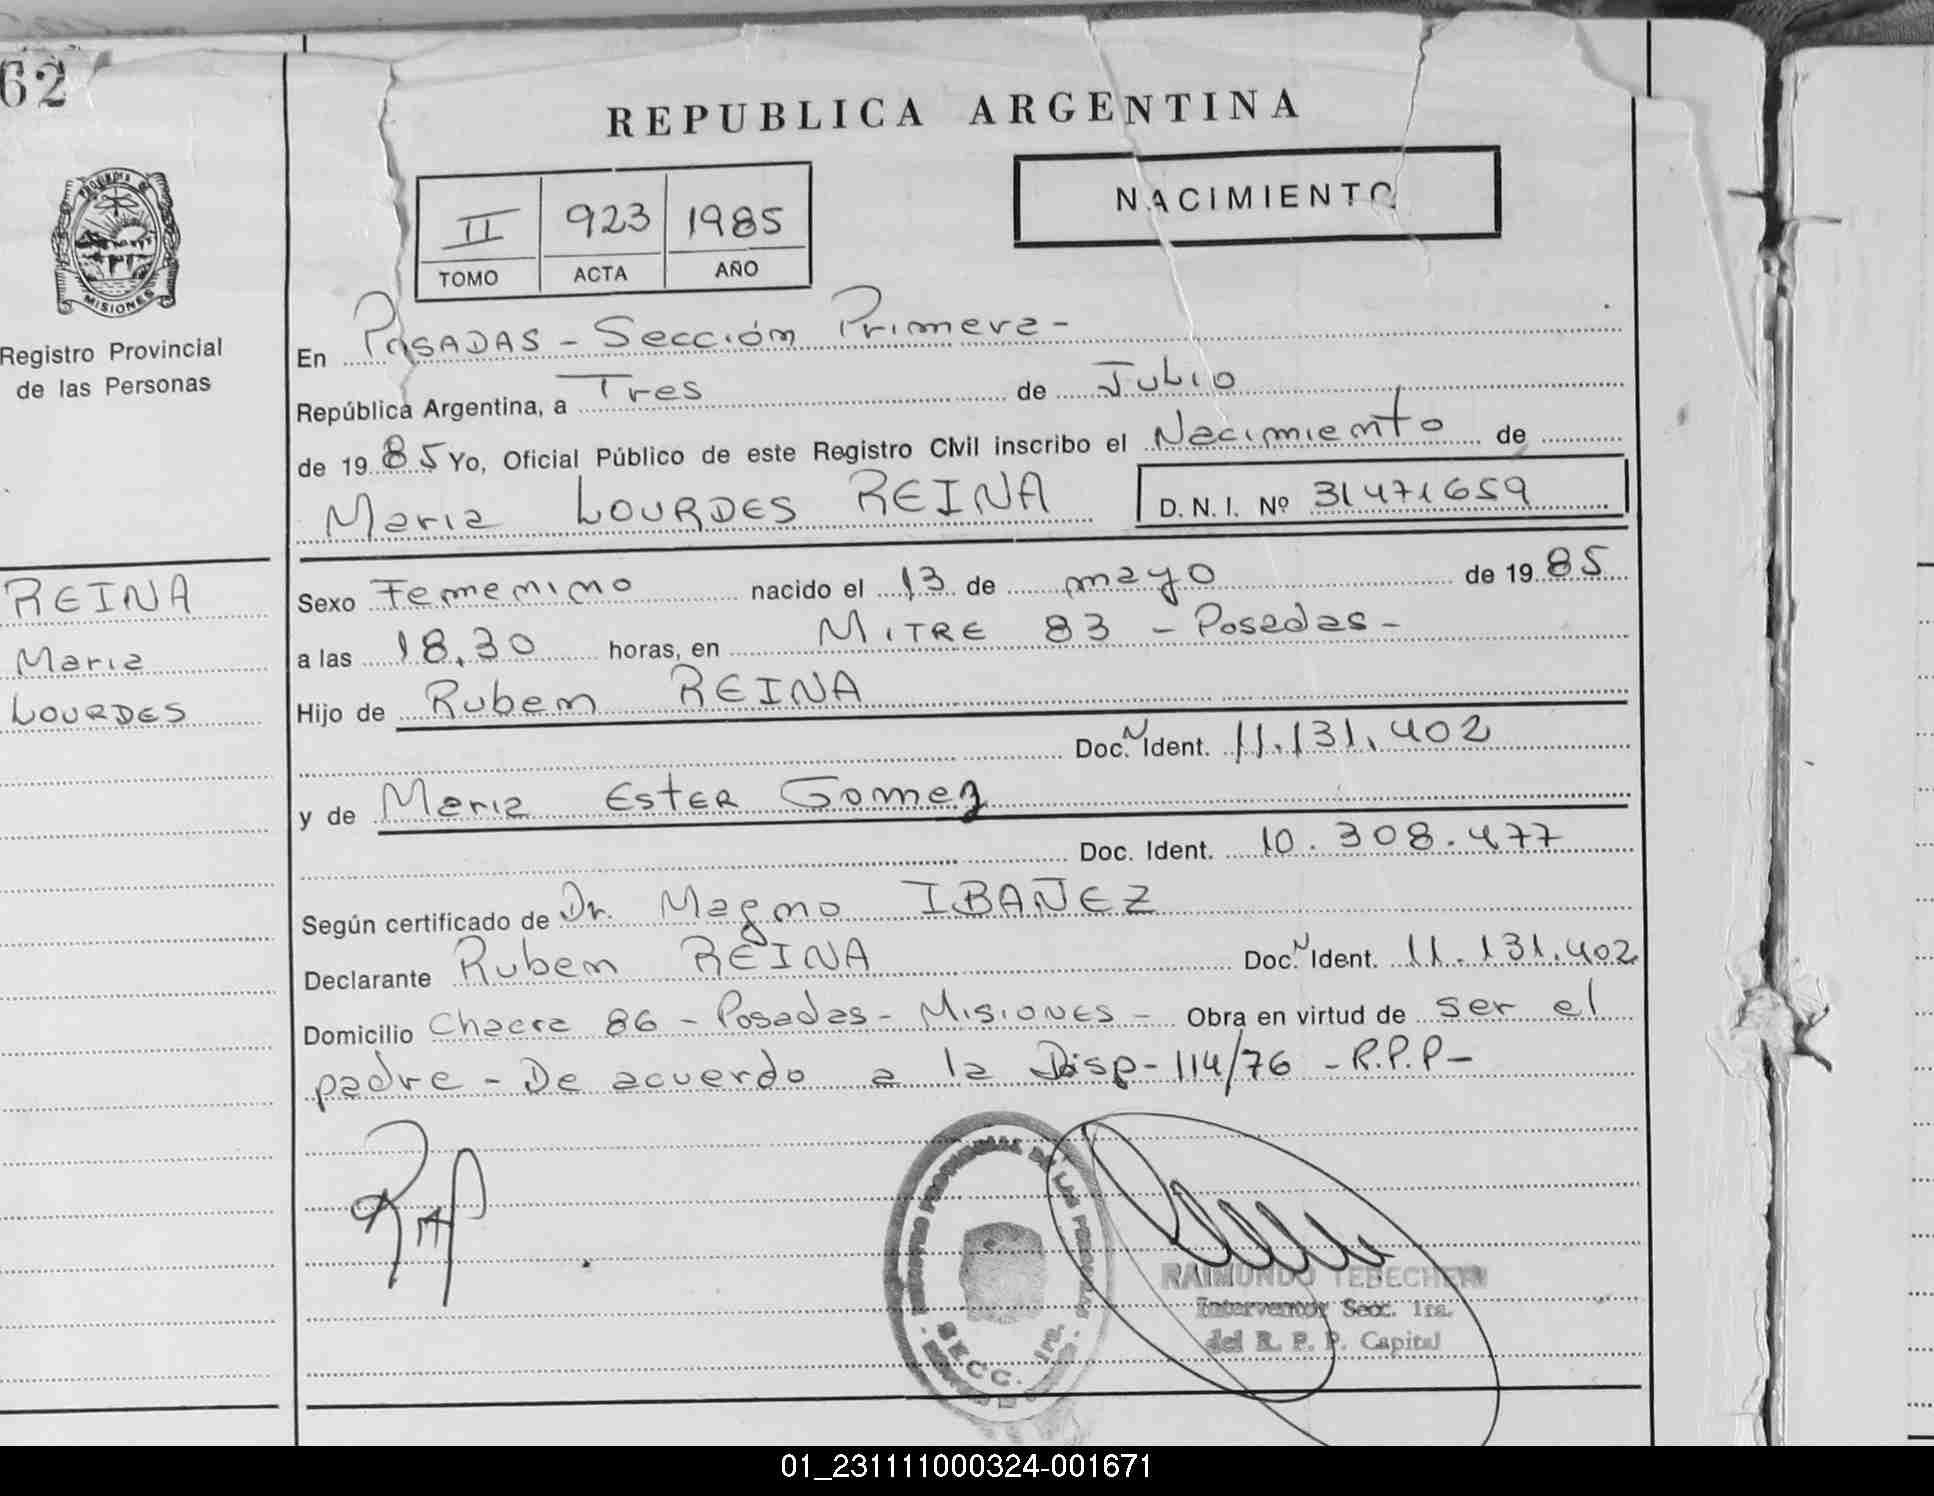 62
REPUBLICA ARGENTINA
II 923 1985
TOMO ACTA AÑO
NACIMIENTO
PROVINCIA DE
MISIONES
Registro Provincial
de las Personas
REINA
Maria
LOURDES
En POSADAS - Sección Primera -
República Argentina, a Tres de JuLio
de 1985 Yo, Oficial Público de este Registro Civil inscribo el Nacimiento de
Maria LOURDES REINA D. N. I. Nº 31471659
Sexo Femenino nacido el 13 de mayo de 1985
a las 18,30 horas, en MITRE 83 - Posadas -
Hijo de Ruben REINA
Doc. N Ident. 11.131.402
y de Maria ESTER Gomez
Doc. Ident. 10.308.477
Según certificado de Dr. Magno IBAÑEZ
Declarante Ruben REINA Doc. N Ident. 11.131.402
Domicilio Chacra 86 - Posadas - MISIONES - Obra en virtud de ser el
padre - De acuerdo a la Disp - 114/76 - R.P.P -
REGISTRO PROVINCIAL DE LAS PERSONAS
SECC. 1ra.
RAIMUNDO TEBECHERI
Interventor Secc. 1ra.
del R. P. P. Capital
01_231111000324-001671